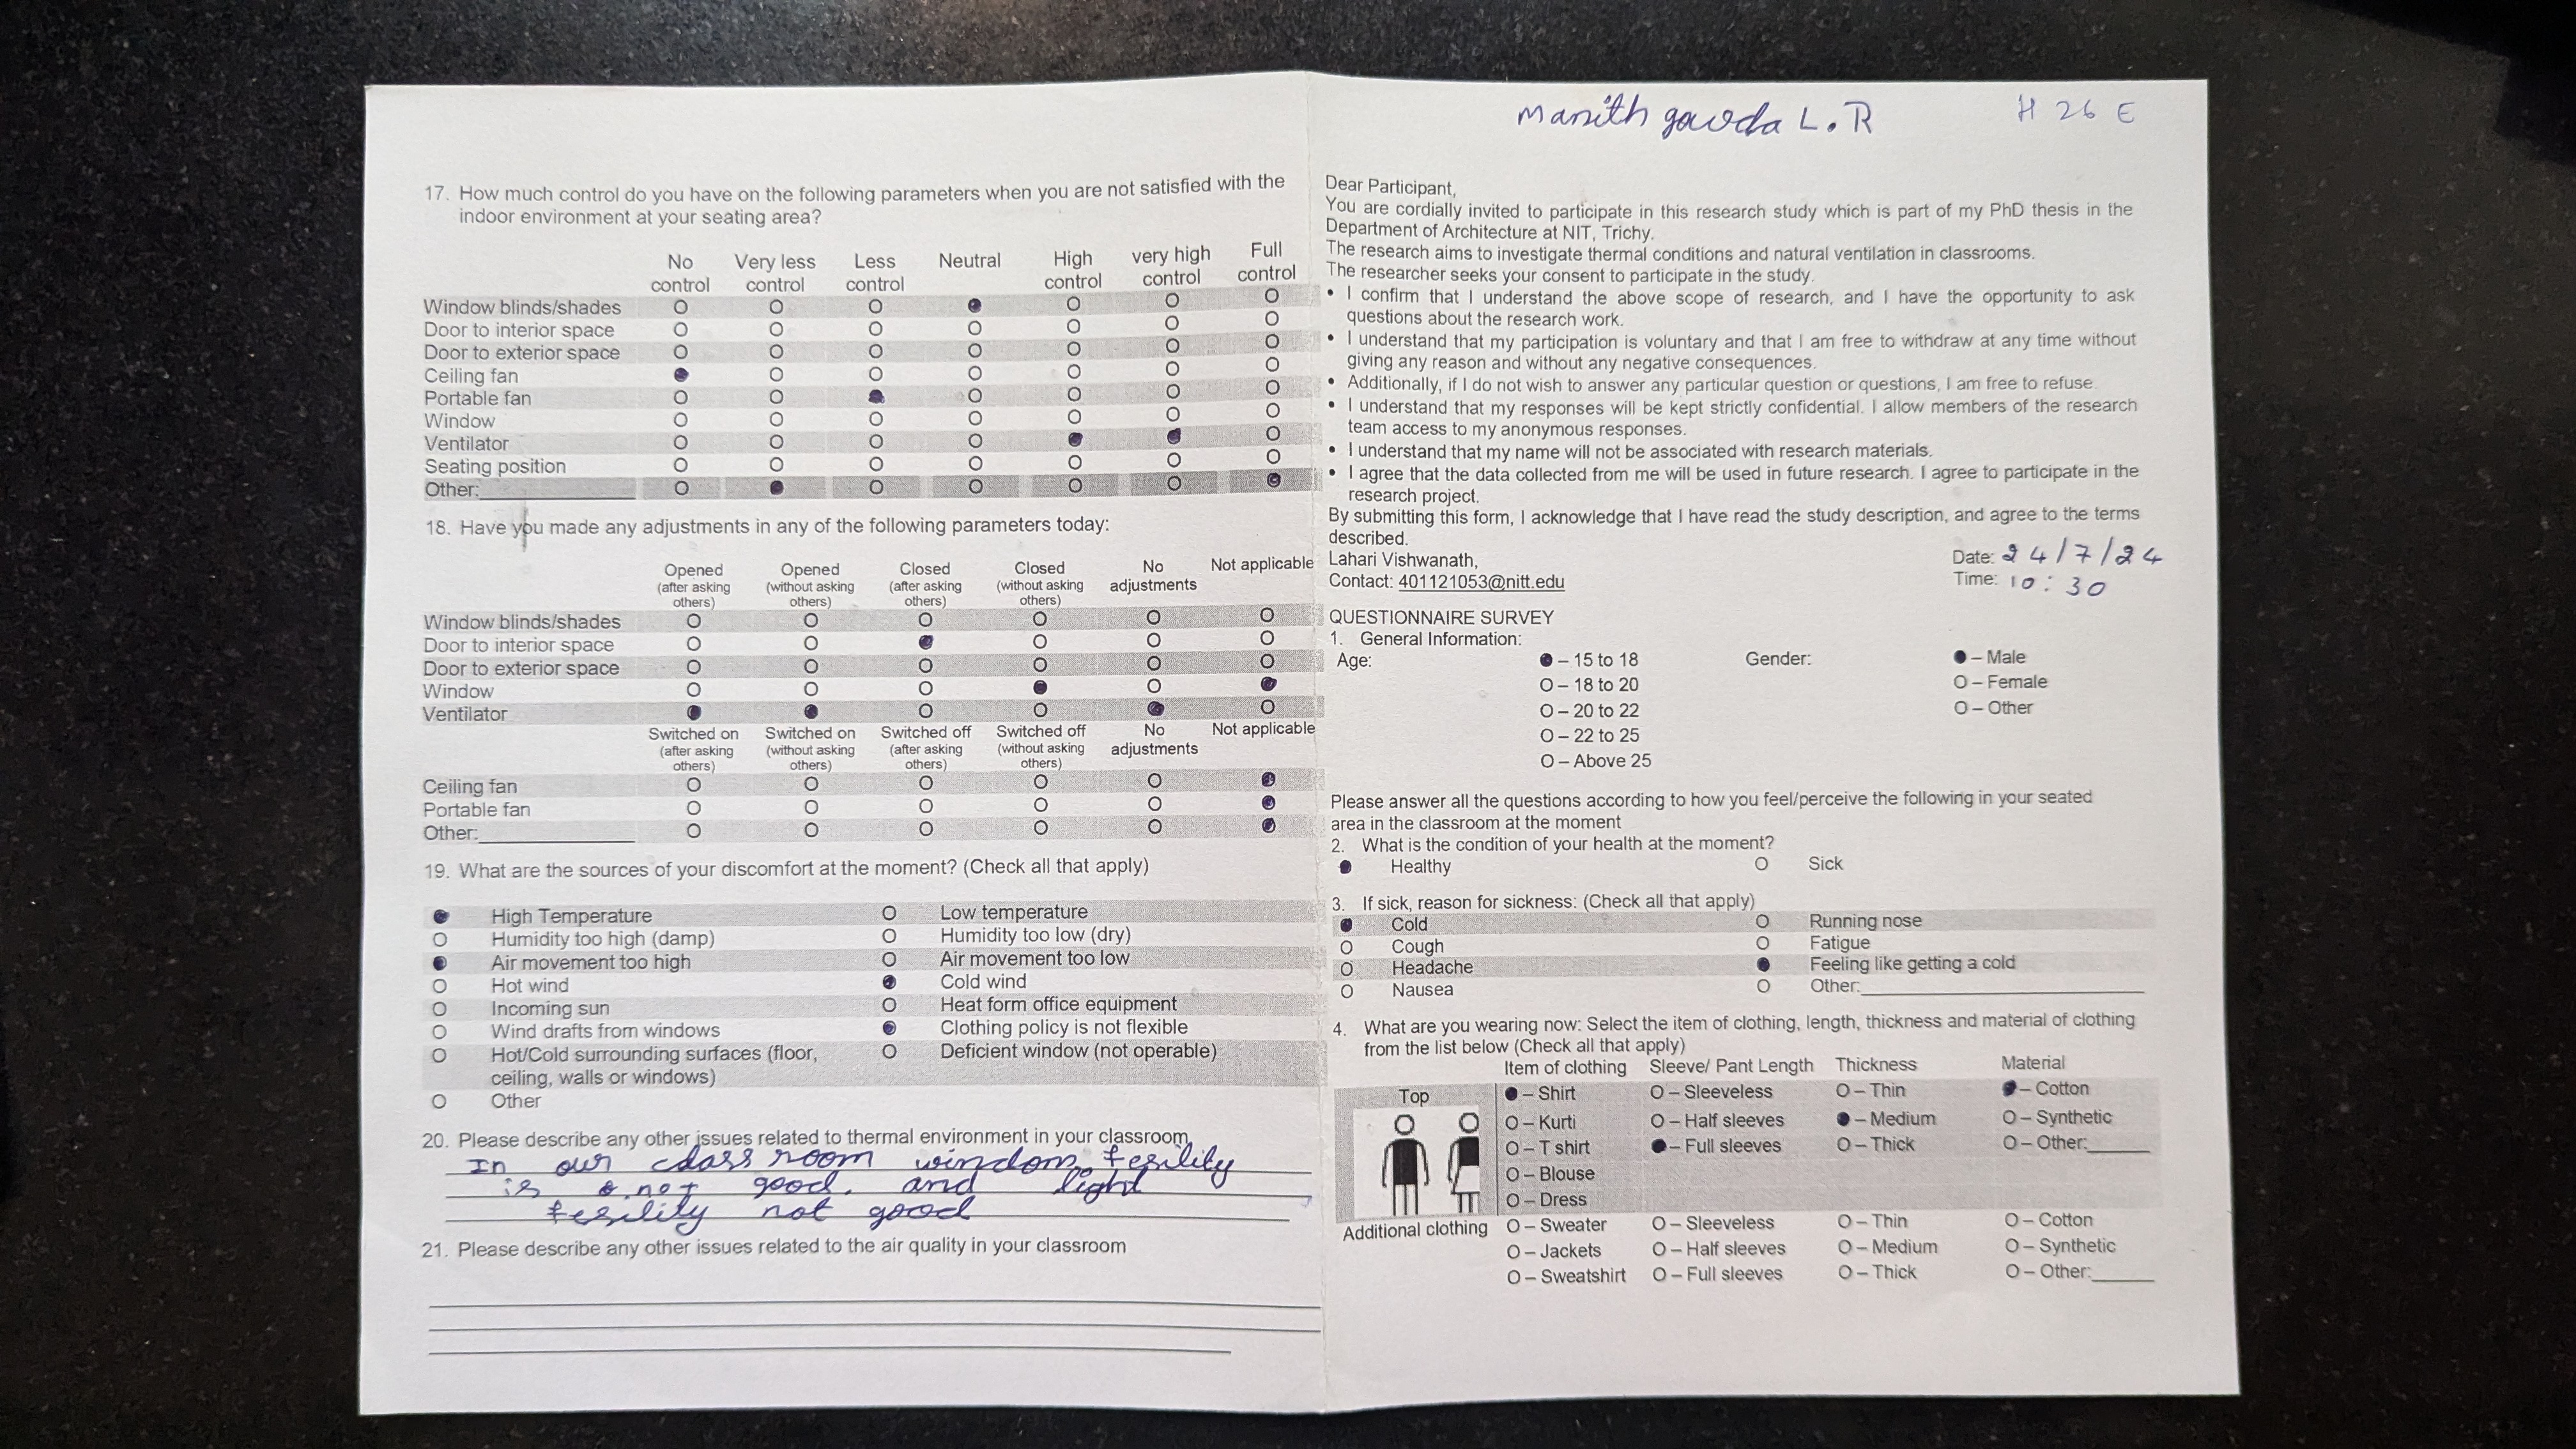 17. How much control do you have on the following parameters when you are not satisfied with the
indoor environment at your seating area?
No control Very less control Less control Neutral High control very high control Full control
Window blinds/shades O O O ● O O O
Door to interior space O O O O O O O
Door to exterior space O O O O O O O
Ceiling fan ● O O O O O O
Portable fan O O ● O O O O
Window O O O O O O O
Ventilator O O O O ● ● O
Seating position O O O O O O O
Other:__________ O ● O O O O ●
18. Have you made any adjustments in any of the following parameters today:
Opened (after asking others) Opened (without asking others) Closed (after asking others) Closed (without asking others) No adjustments Not applicable
Window blinds/shades O O O O O O
Door to interior space O O ● O O O
Door to exterior space O O O O O O
Window O O O ● O ●
Ventilator ● ● O O ● O
Switched on (after asking others) Switched on (without asking others) Switched off (after asking others) Switched off (without asking others) No adjustments Not applicable
Ceiling fan O O O O O ●
Portable fan O O O O O ●
Other:__________ O O O O O ●
19. What are the sources of your discomfort at the moment? (Check all that apply)
● High Temperature O Low temperature
O Humidity too high (damp) O Humidity too low (dry)
● Air movement too high O Air movement too low
O Hot wind ● Cold wind
O Incoming sun O Heat form office equipment
O Wind drafts from windows ● Clothing policy is not flexible
O Hot/Cold surrounding surfaces (floor, O Deficient window (not operable)
ceiling, walls or windows)
O Other
20. Please describe any other issues related to thermal environment in your classroom
In our class room window fesility
is not good. and light
fesility not good
21. Please describe any other issues related to the air quality in your classroom
Manith gowda L.R H 26 E
Dear Participant,
You are cordially invited to participate in this research study which is part of my PhD thesis in the
Department of Architecture at NIT, Trichy.
The research aims to investigate thermal conditions and natural ventilation in classrooms.
The researcher seeks your consent to participate in the study.
• I confirm that I understand the above scope of research, and I have the opportunity to ask
questions about the research work.
• I understand that my participation is voluntary and that I am free to withdraw at any time without
giving any reason and without any negative consequences.
• Additionally, if I do not wish to answer any particular question or questions, I am free to refuse.
• I understand that my responses will be kept strictly confidential. I allow members of the research
team access to my anonymous responses.
• I understand that my name will not be associated with research materials.
• I agree that the data collected from me will be used in future research. I agree to participate in the
research project.
By submitting this form, I acknowledge that I have read the study description, and agree to the terms
described.
Lahari Vishwanath, Date: 24/7/24
Contact: 401121053@nitt.edu Time: 10:30
QUESTIONNAIRE SURVEY
1. General Information:
Age: ● – 15 to 18 Gender: ● – Male
O – 18 to 20 O – Female
O – 20 to 22 O – Other
O – 22 to 25
O – Above 25
Please answer all the questions according to how you feel/perceive the following in your seated
area in the classroom at the moment
2. What is the condition of your health at the moment?
● Healthy O Sick
3. If sick, reason for sickness: (Check all that apply)
● Cold O Running nose
O Cough O Fatigue
O Headache ● Feeling like getting a cold
O Nausea O Other:__________
4. What are you wearing now: Select the item of clothing, length, thickness and material of clothing
from the list below (Check all that apply)
Item of clothing Sleeve/ Pant Length Thickness Material
Top ● – Shirt O – Sleeveless O – Thin ● – Cotton
O – Kurti O – Half sleeves ● – Medium O – Synthetic
O – T shirt ● – Full sleeves O – Thick O – Other:_____
O – Blouse
O – Dress
Additional clothing O – Sweater O – Sleeveless O – Thin O – Cotton
O – Jackets O – Half sleeves O – Medium O – Synthetic
O – Sweatshirt O – Full sleeves O – Thick O – Other:_____